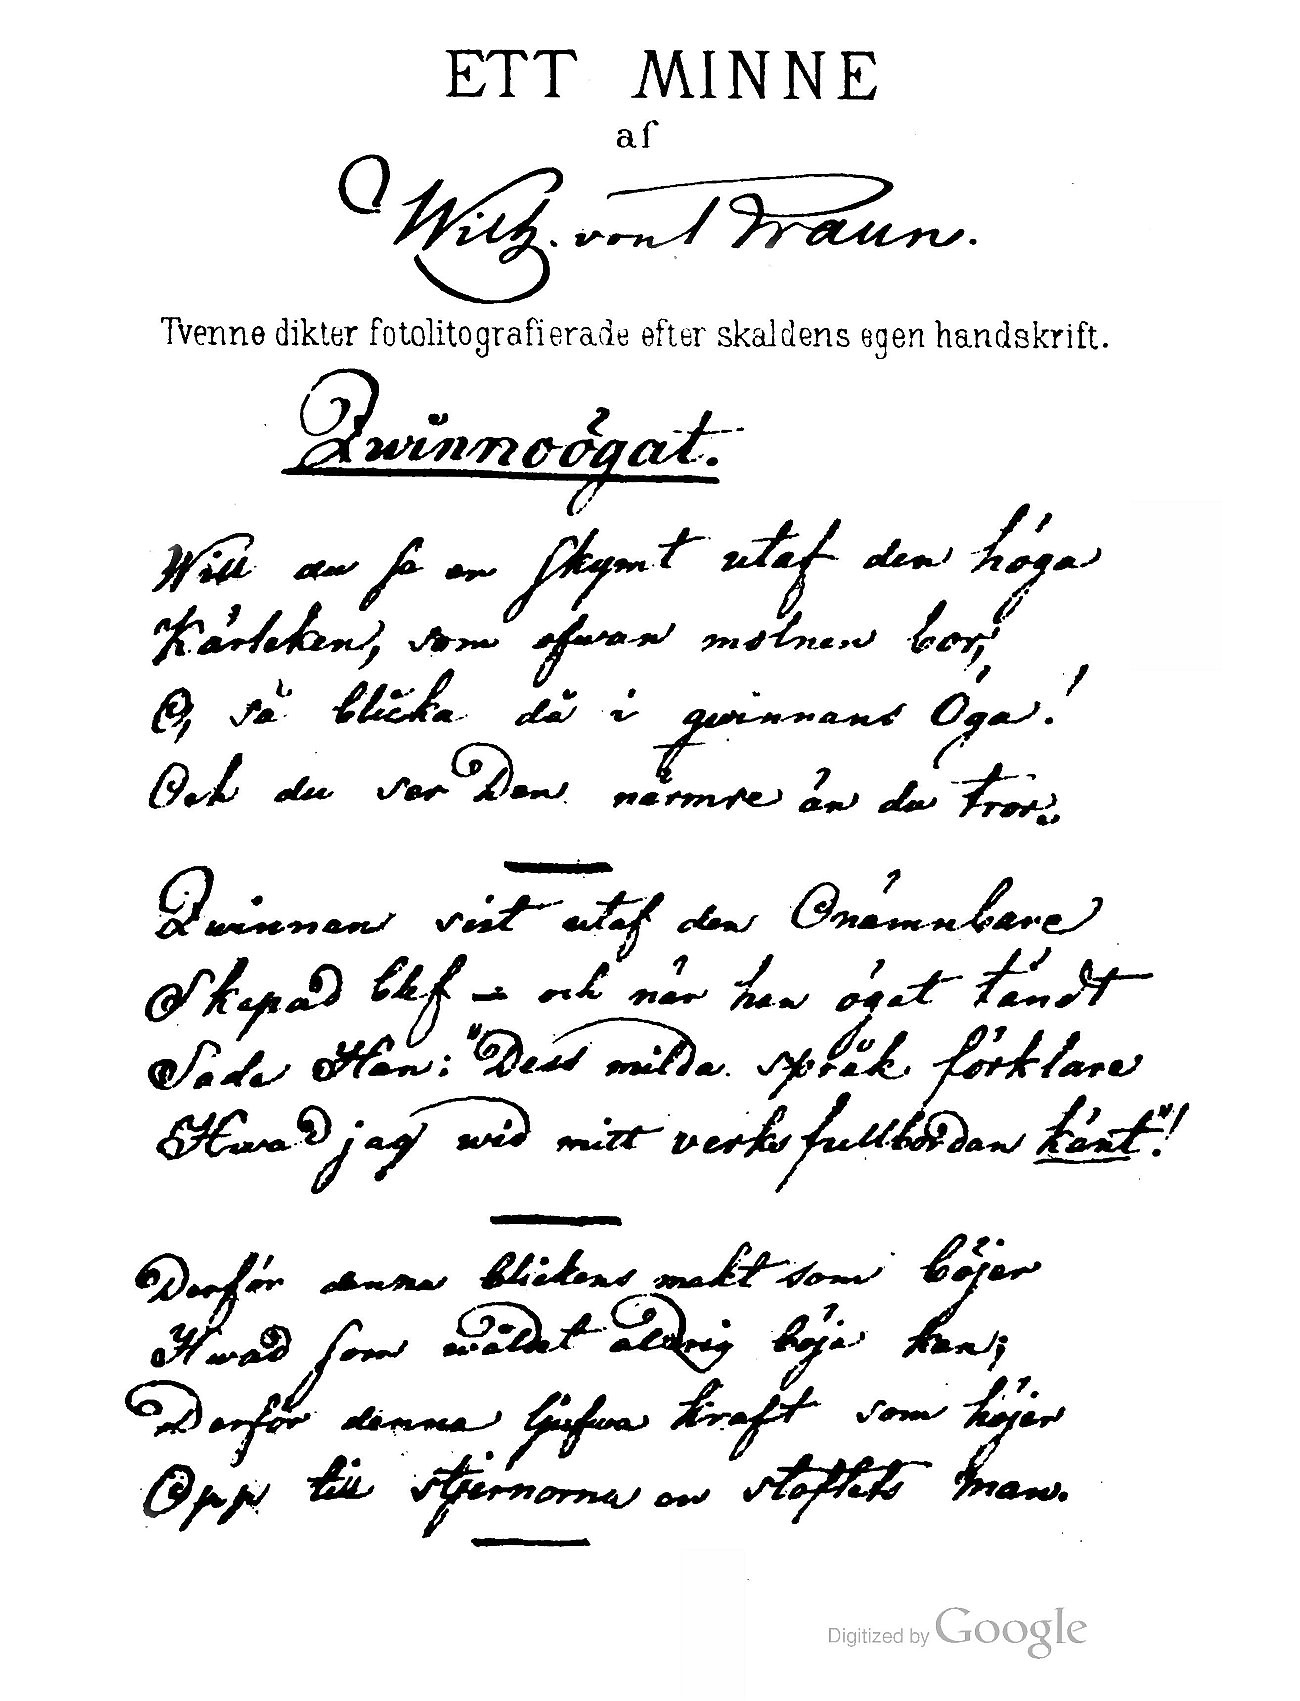 ETT MINNE
af
Wilh. von Braun.
Tvenne dikter fotolitografierade efter skaldens egen handskrift.
Qwinnoögat.
Will du se en skymt utaf den höga
Kärleken, som ofwan molnen bor,
O, så blicka då i qwinnans Öga!
Och du ser Den närmre än du tror.
Qwinnan sist utaf den Onämnbare
Skapad blef – och när han ögat tändt
Sade Han: "Dess milda språk förklare
Hwad jag wid mitt verks fullbordan känt"!
Derför denna blickens makt som böjer
Hwad som wåldet aldrig böja kan;
Derför denna ljufwa kraft som höjer
Opp till stjernorna en stoftets man.
Digitized by Google